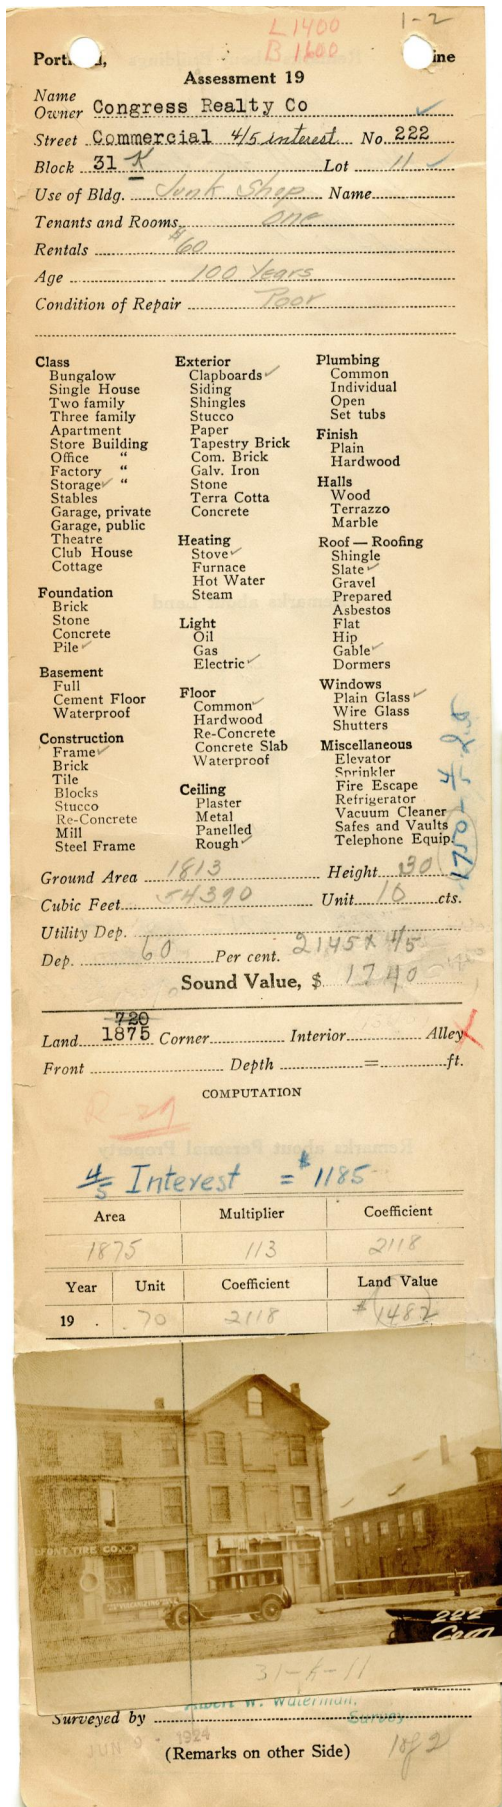 L 1400
1-2
B 1600
Port , ine
Assessment 19
Name
Owner Congress Realty Co
Street Commercial 4/5 interest No. 222
Block 31 K Lot 11
Use of Bldg. Junk Shop Name
Tenants and Rooms one
Rentals $60
Age 100 Years
Condition of Repair Poor
Class
Bungalow
Single House
Two family
Three family
Apartment
Store Building
Office "
Factory "
Storage ✓ "
Stables
Garage, private
Garage, public
Theatre
Club House
Cottage
Foundation
Brick
Stone
Concrete
Pile ✓
Basement
Full
Cement Floor
Waterproof
Construction
Frame ✓
Brick
Tile
Blocks
Stucco
Re-Concrete
Mill
Steel Frame
Exterior
Clapboards ✓
Siding
Shingles
Stucco
Paper
Tapestry Brick
Com. Brick
Galv. Iron
Stone
Terra Cotta
Concrete
Heating
Stove ✓
Furnace
Hot Water
Steam
Light
Oil
Gas
Electric ✓
Floor
Common ✓
Hardwood
Re-Concrete
Concrete Slab
Waterproof
Ceiling
Plaster
Metal
Panelled
Rough ✓
Plumbing
Common
Individual
Open
Set tubs
Finish
Plain
Hardwood
Halls
Wood
Terrazzo
Marble
Roof — Roofing
Shingle
Slate ✓
Gravel
Prepared
Asbestos
Flat
Hip
Gable ✓
Dormers
Windows
Plain Glass ✓
Wire Glass
Shutters
Miscellaneous
Elevator
Sprinkler
Fire Escape
Refrigerator
Vacuum Cleaner
Safes and Vaults
Telephone Equip.
1750 - 4/5 Int
Ground Area 1813 Height 30
Cubic Feet 54390 Unit 10 cts.
Utility Dep.
Dep. 60 Per cent. 2145 x 4/5
Sound Value, $ 1740
720
Land 1875 Corner Interior Alley
Front Depth = ft.
COMPUTATION
R-29
4/5 Interest = $1185
Area Multiplier Coefficient
1875 113 2118
Year Unit Coefficient Land Value
19 . .70 2118 $1482
TIRE CO.
222
Com
31-K-11
Albert W. Waterman,
Surveyed by Survey
JUN 9 - 1924
(Remarks on other Side) 1 of 2